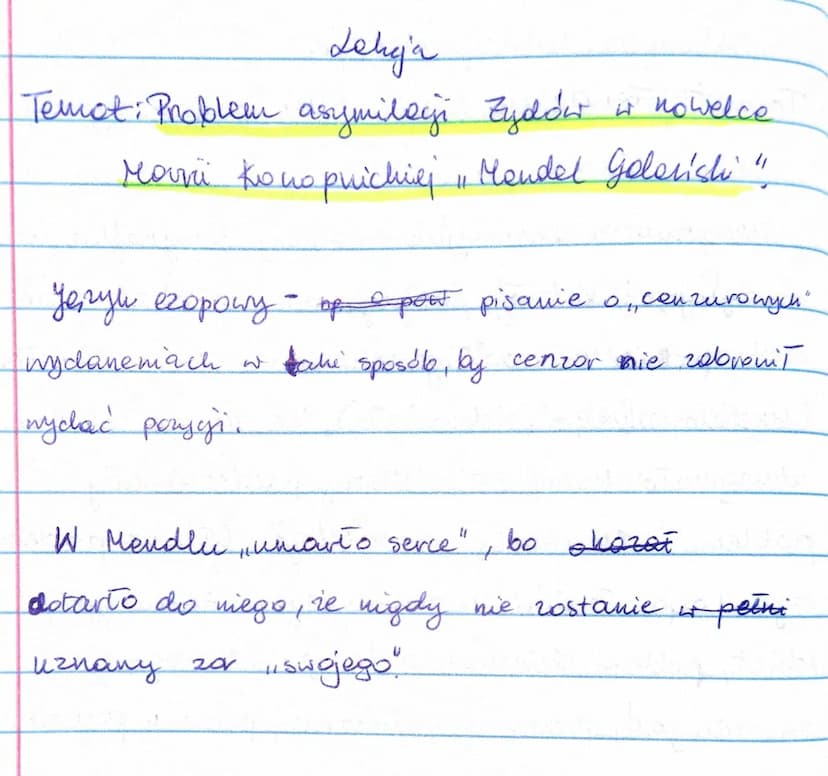 Lekcja
Temat: Problem asymilacji Żydów w nowelce
Marii Konopnickiej „Mendel Gdański”.
Język ezopowy - np. o pow pisanie o „cenzurowych”
wydarzeniach w taki sposób, by cenzor nie zabronił
wydać pozycji.
W Mendlu „umarło serce”, bo okazał
dotarło do niego, że nigdy nie zostanie w pełni
uznany za „swojego”.